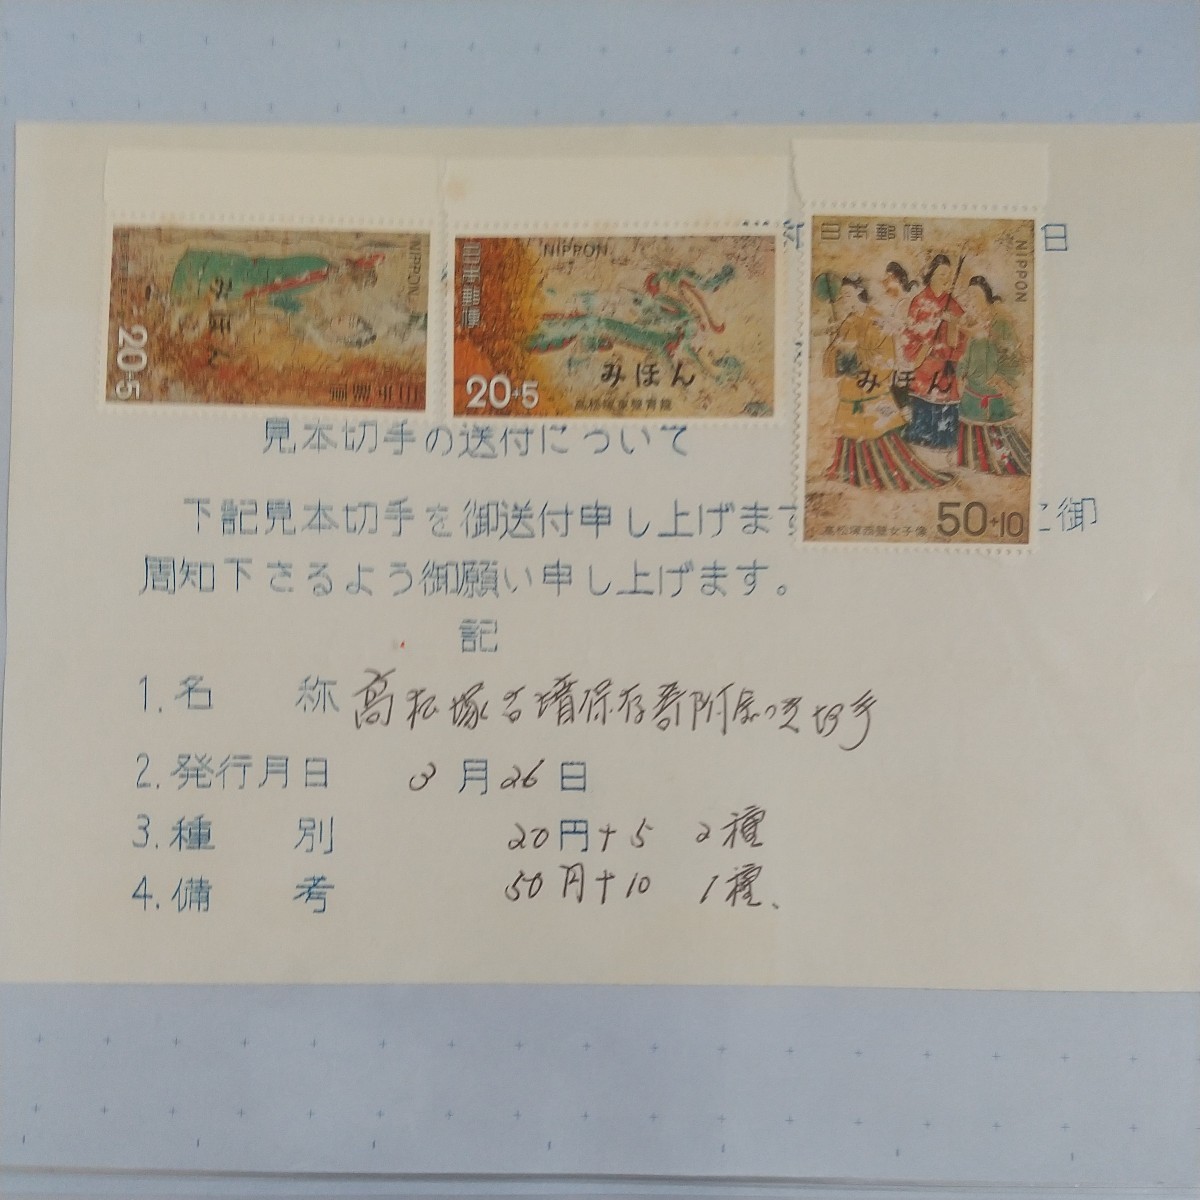 日
NIPPON
日本郵便
20+5
みほん
NIPPON
日本郵便
みほん
20+5
高松塚東壁青龍
日本郵便
NIPPON
みほん
高松塚西壁女子像
50+10
見本切手の送付について
下記見本切手を御送付申し上げます 御
周知下さるよう御願い申し上げます。
記
1.名 称 高松塚古墳保存寄附金つき切手
2.発行月日 3月26日
3.種 別 20円+5 2種
4.備 考 50円+10 1種、